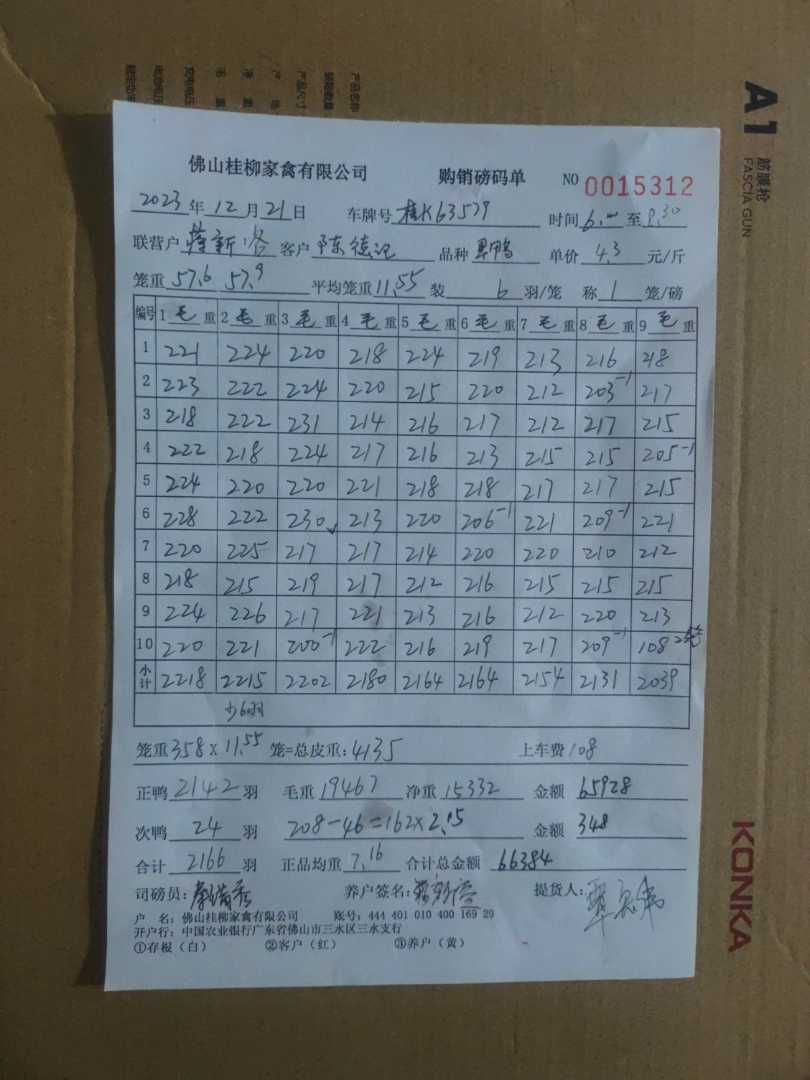 A1
筋膜枪
FASCIA GUN
KONKA
佛山桂柳家禽有限公司 购销磅码单 NO 0015312
2023年12月21日 车牌号 桂K63579 时间 6:00 至 8:30
联营户 蒋新 客户 陈德 品种 单价 4.3 元/斤
笼重 57.6 57.9 平均笼重 11.55 装 6 羽/笼 称 1 笼/磅
编号 1 毛 重 2 毛 重 3 毛 重 4 毛 重 5 毛 重 6 毛 重 7 毛 重 8 毛 重 9 毛 重
1 221 224 220 218 224 219 213 216 218
2 223 222 224 220 215 220 212 203-1 217
3 218 222 231 214 216 217 212 217 215
4 222 218 224 217 216 213 215 215 205-1
5 224 220 220 221 218 218 217 217 215
6 228 222 230 213 220 206-1 221 209-1 221
7 220 225 217 217 214 220 220 210 212
8 218 215 219 217 212 216 215 215 215
9 224 226 217 221 213 216 212 220 213
10 220 221 200-1 222 216 219 217 209-1 108
小计 2218 2215 2202 2180 2164 2164 2154 2131 2039
少6羽
笼重 358 × 11.55 笼=总皮重: 4135 上车费 108
正鸭 2142 羽 毛重 19467 净重 15332 金额 65928
次鸭 24 羽 208-46=162×2.15 金额 348
合计 2166 羽 正品均重 7.16 合计总金额 66384
司磅员: 养户签名: 提货人:
户 名: 佛山桂柳家禽有限公司 账号: 444 401 010 400 169 29
开户行: 中国农业银行广东省佛山市三水区三水支行
①存根(白) ②客户(红) ③养户(黄)